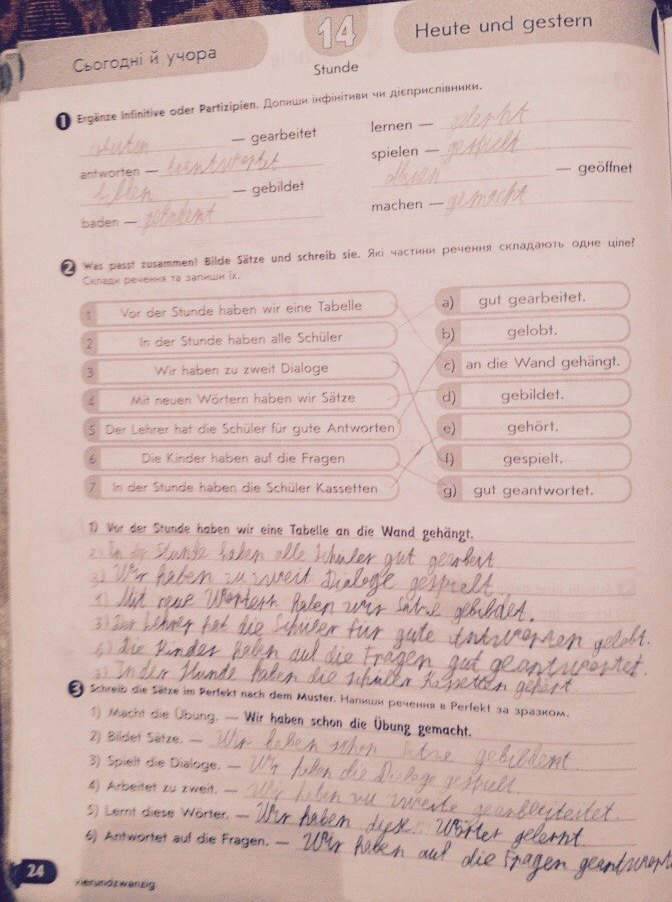 Сьогодні й учора
14
Stunde
Heute und gestern
1 Ergänze Infinitive oder Partizipien. Допиши інфінітиви чи дієприслівники.
— gearbeitet
antworten — beantwortet
— gebildet
baden —
lernen — gelernt
spielen — gespielt
— geöffnet
machen — gemacht
2 Was passt zusammen? Bilde Sätze und schreib sie. Які частини речення складають одне ціле?
Склади речення та запиши їх.
1 Vor der Stunde haben wir eine Tabelle
2 In der Stunde haben alle Schüler
3 Wir haben zu zweit Dialoge
4 Mit neuen Wörtern haben wir Sätze
5 Der Lehrer hat die Schüler für gute Antworten
6 Die Kinder haben auf die Fragen
7 In der Stunde haben die Schüler Kassetten
a) gut gearbeitet.
b) gelobt.
c) an die Wand gehängt.
d) gebildet.
e) gehört.
f) gespielt.
g) gut geantwortet.
1) Vor der Stunde haben wir eine Tabelle an die Wand gehängt.
2) In der Stunde haben alle Schuler gut
3) Wir haben zu zweit Dialoge gespielt
4) Mit neue Wörtern haben wir Sätze gebildet.
5) Der Lehrer hat die Schuler für gute Antworten gelobt.
6) Die Kinder haben auf die Fragen gut geantwortet.
In der Stunde haben die Schuler Kassetten gehört
3 Schreib die Sätze im Perfekt nach dem Muster. Напиши речення в Perfekt за зразком.
1) Macht die Übung. — Wir haben schon die Übung gemacht.
2) Bildet Sätze. — Wir haben schon Sätze
3) Spielt die Dialoge. — Wir haben die Dialoge gespielt.
4) Arbeitet zu zweit. — Wir haben zu zweite
5) Lernt diese Wörter. — Wir haben diese Wörter gelernt
6) Antwortet auf die Fragen. — Wir haben auf die Fragen geantwort
24
vierundzwanzig